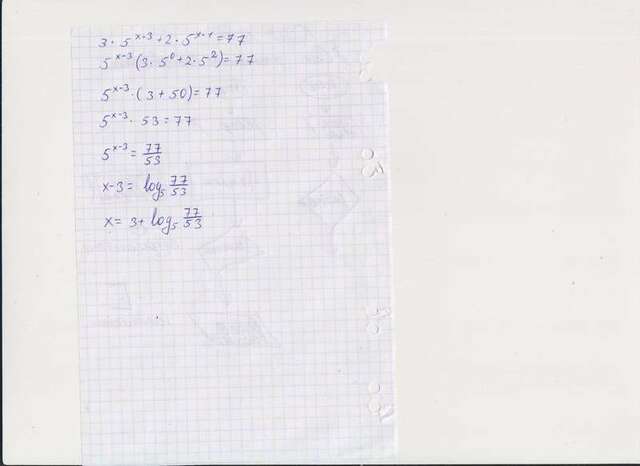 3 · 5^(x-3) + 2 · 5^(x-1) = 77
5^(x-3) (3 · 5^0 + 2 · 5^2) = 77
5^(x-3) · (3 + 50) = 77
5^(x-3) · 53 = 77
5^(x-3) = 77/53
x-3 = log₅ 77/53
x = 3 + log₅ 77/53